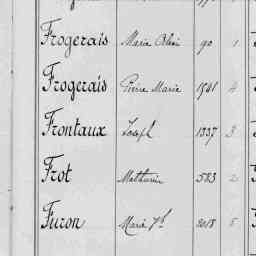 Frogerais Marie 90 1
Frogerais Pierre Marie 1541 4
Frontaux Joseph 1337 3
Frot Mathurin 583 2
Furon Marie 2018 5